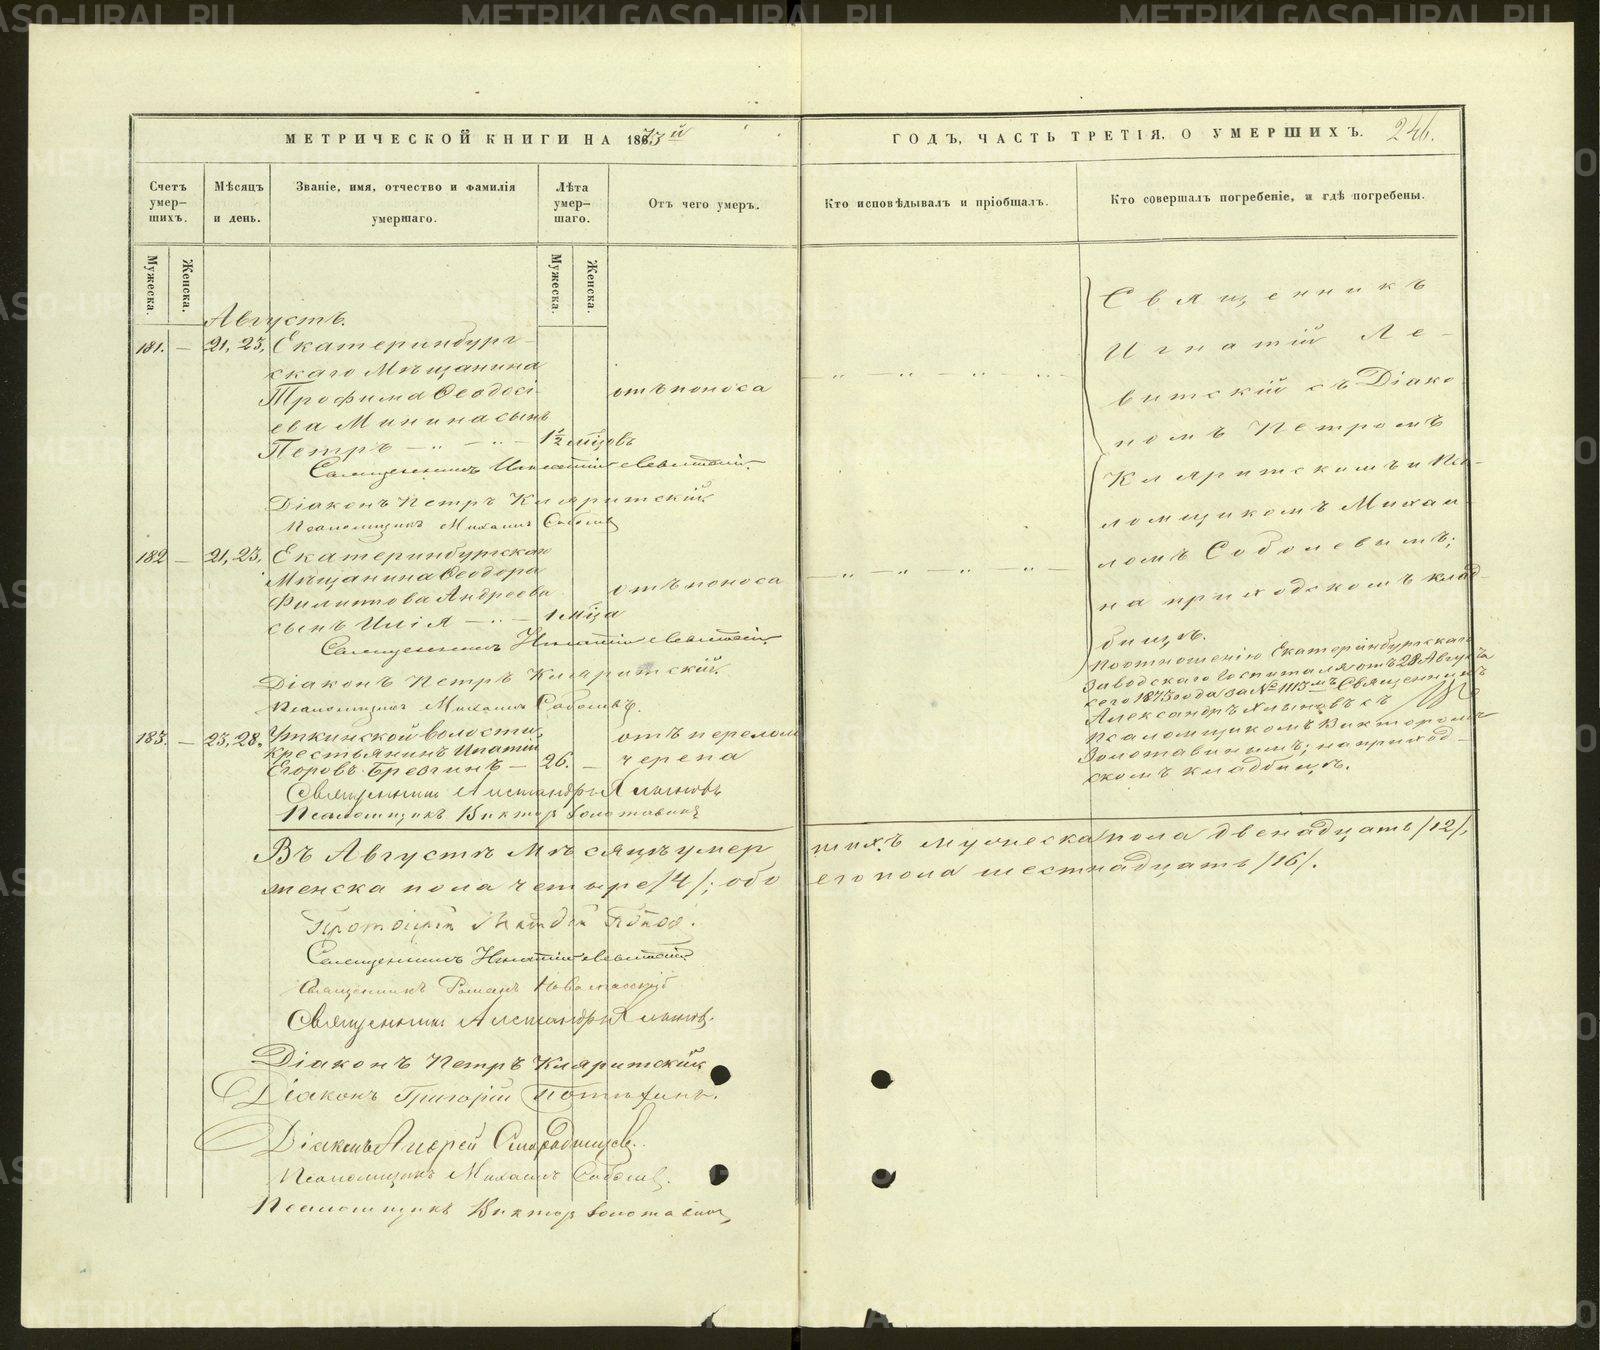 МЕТРИЧЕСКОЙ КНИГИ НА 1873й
ГОДЪ, ЧАСТЬ ТРЕТІЯ, О УМЕРШИХЪ. 246.
Счетъ умер-шихъ.
Мѣсяцъ и день.
Званіе, имя, отчество и фамилія умершаго.
Лѣта умер-шаго.
Отъ чего умеръ.
Кто исповѣдывалъ и пріобщалъ.
Кто совершалъ погребеніе, и гдѣ погребены.
Мужеска.
Женска.
Мужеска.
Женска.
Августъ.
181. — 21, 23, Екатеринбург-
скаго Мѣщанина
Трофима Ѳеодосі-
ева Минина сынъ
Петръ — „ — „ — 1½ мѣцовъ
отъ поноса
Священникъ Игнатій Левитскій.
Діаконъ Петръ Кляритскій
Псаломщикъ Михаилъ Соболевъ
182 — 21, 23, Екатеринбургскаго
Мѣщанина Ѳеодора
Филиппова Андреева
сынъ Илія — „ — 1 мѣца
отъ поноса
Священникъ Игнатій Левитскій.
Діаконъ Петръ Кляритскій.
Псаломщикъ Михаилъ Соболевъ.
183. — 23, 28. Уткинской волости,
крестьянинъ Ипатій
Егоровъ Брезгинъ — 26. —
отъ перелома
черепа
Священникъ Александръ Хлыновъ
Псаломщикъ Викторъ Золотавинъ
Священникъ
Игнатій Ле-
витскій съ Діако
номъ Петромъ
Кляритскимъ и Пса-
ломщикомъ Михаи-
ломъ Соболевымъ;
на приходскомъ клад-
бищѣ.
По отношенію Екатеринбургскаго
Заводскаго Госпиталя отъ 28 Августа
сего 1873 года за № 1113мъ Священникъ
Александръ Хлыновъ съ
Псаломщикомъ Викторомъ
Золотавинымъ; на приход-
скомъ кладбищѣ.
Въ Августѣ Мѣсяцѣ умер шихъ мужеска пола двенадцать /12/,
женска пола четыре /4/; обо его пола шестнадцать /16/.
Протоіерей Попов.
Священникъ Игнатій Левитскій
Священникъ Романъ
Священникъ Александръ Хлыновъ.
Діаконъ Петръ Кляритскій
Діаконъ Григорій Потѣхинъ.
Діаконъ Андрей
Псаломщикъ Михаилъ Соболевъ.
Псаломщикъ Викторъ Золотавинъ